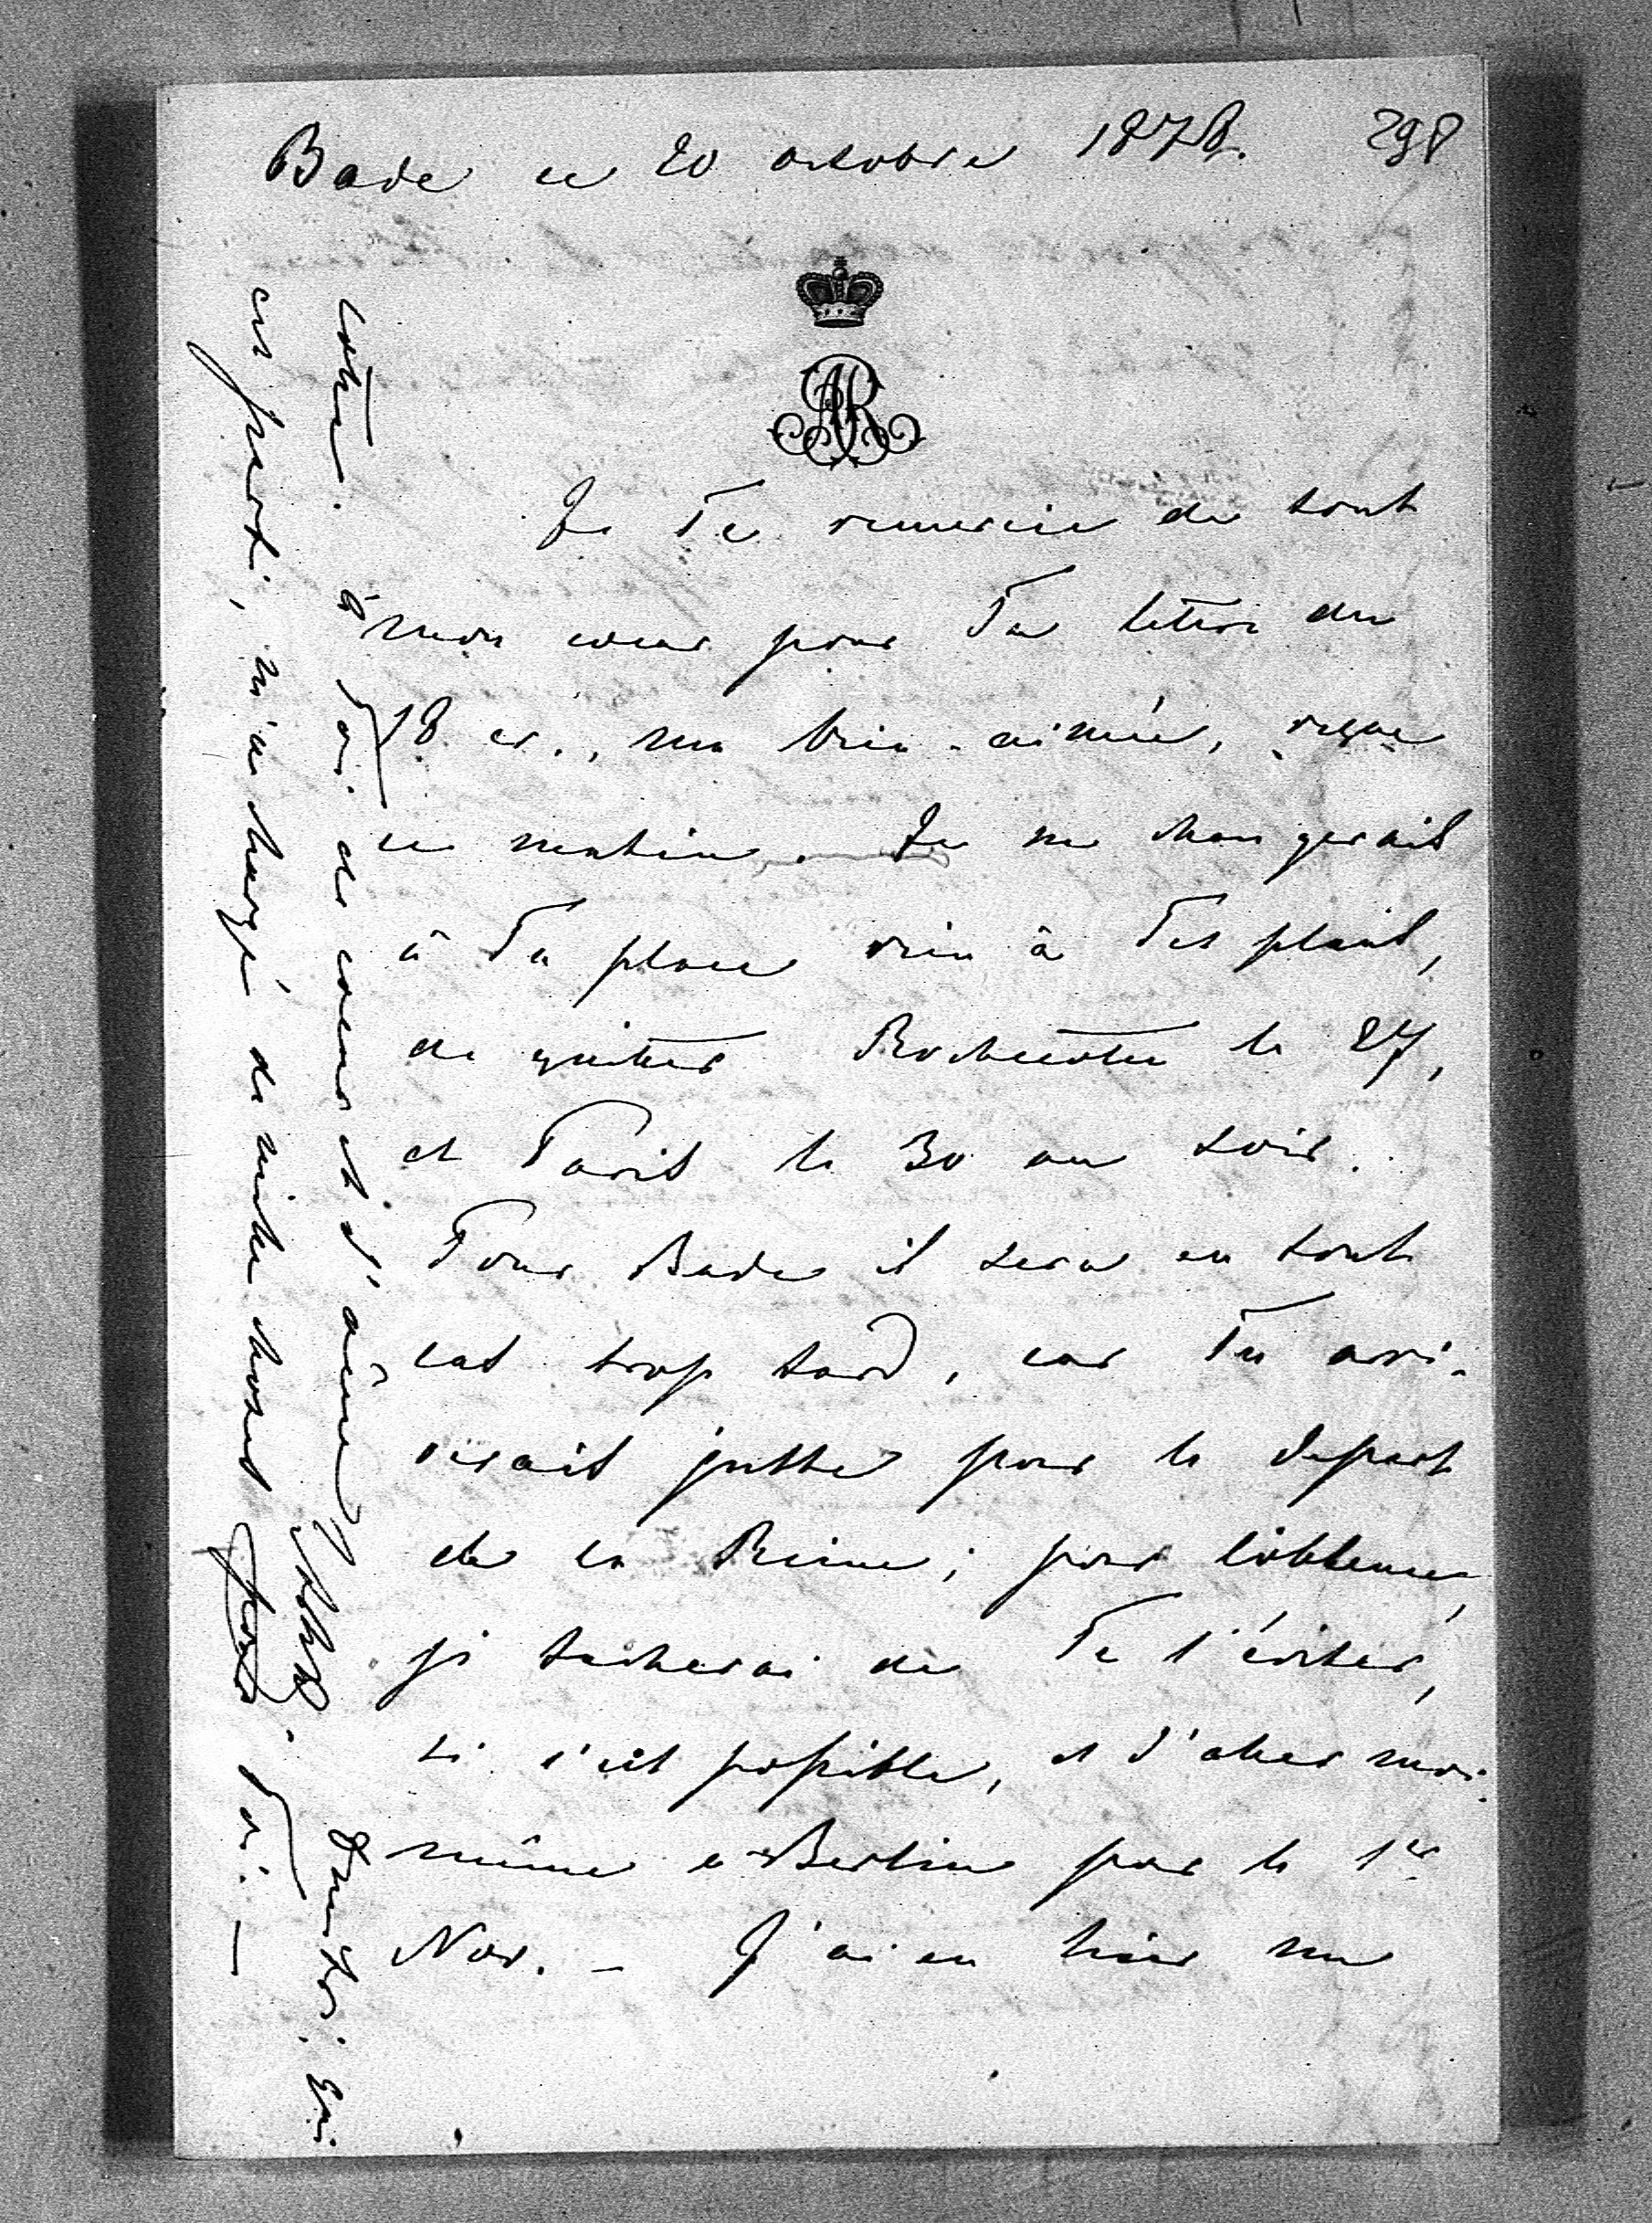 Bade ce 20 octobre 1878. 298
AR
Je Te remercie de tout
mon coeur pour Ta lettre du
18 cr., ma bien-aimée, reçue
ce matin. Je ne changerais
à Ta place rien à Tes plans,
de quitter Rochecotte le 27,
et Paris le 30 au soir.
Pour Bade il sera en tout
cas trop tard, car Tu arri-
verais juste pour le départ
de la Reine; pour Coblence,
je tacherai de Te l'éviter,
si c'est possible, et d'aller moi-
même à Berlin par le 1er
Nov. – J'ai eu hier une
lettre. à Toi de coeur et d'âme
qui
est parti, m'a chargé de mille choses pour Toi. –